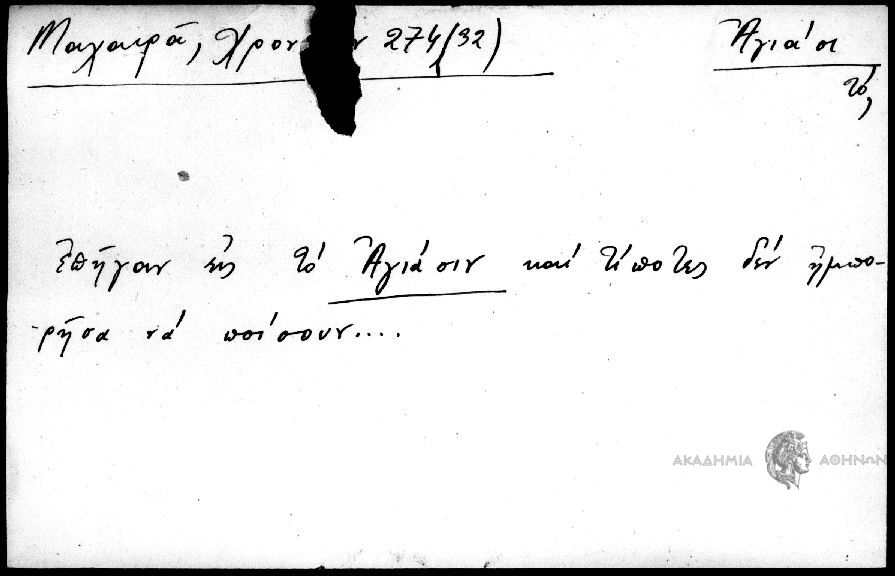 Μαχαιρᾶ, 274(32)
Ἁγιάσι
τό,
ἐπῆγαν εἰς τό Ἁγιάσιν καί τίποτες δέν ἠμπο-
ρῆσα νά ποίσουν....
ΑΚΑΔΗΜΙΑ ΑΘΗΝΩΝ